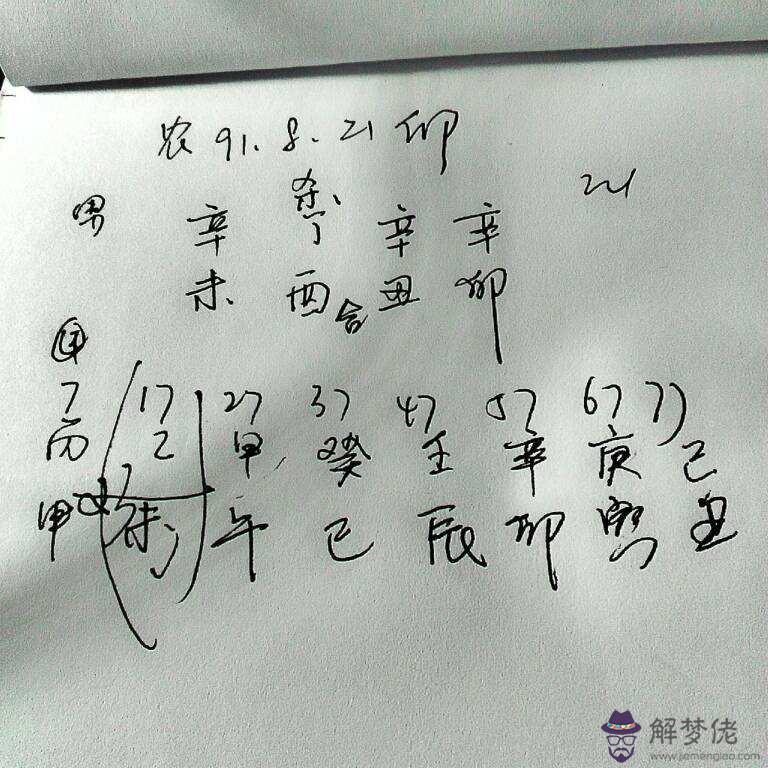 农 91. 8. 21 卯
杀
男 辛 丁 辛 辛 21
未 酉 合 丑 卯
7 17 27 37 47 57 67 77
丙 乙 甲 癸 壬 辛 庚 己
申 未 午 巳 辰 卯 寅 丑
解梦佬
www.jiemenglao.com